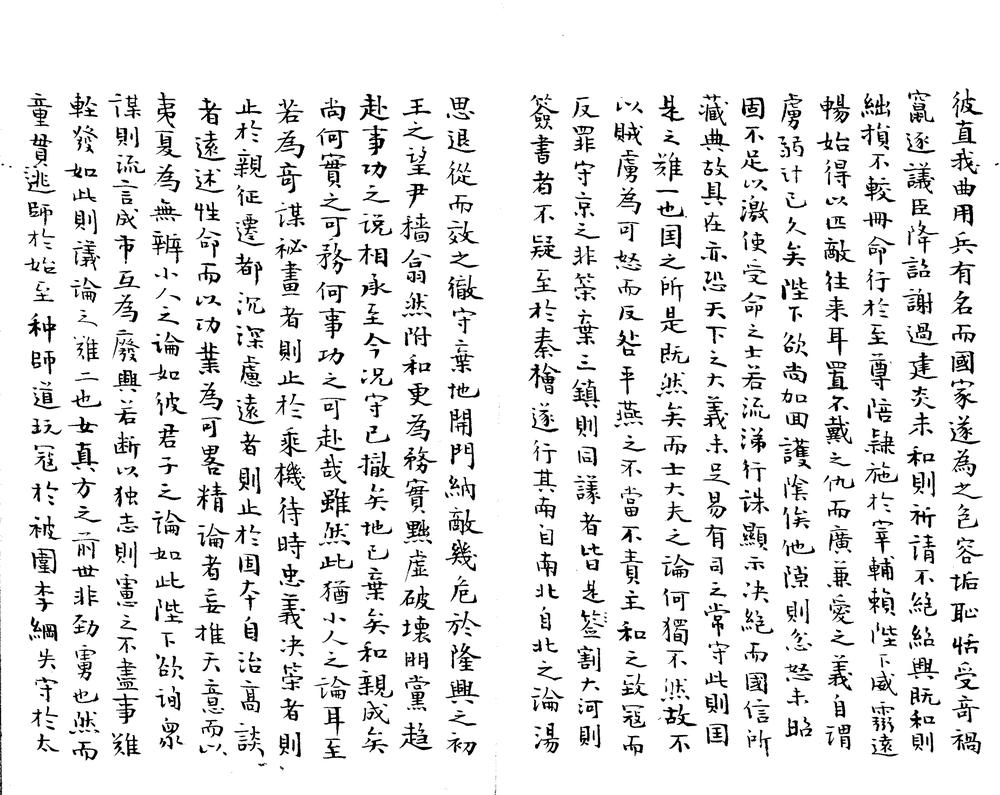 彼直我曲用兵有名而國家遂為之色容垢恥恬受奇禍
竄逐議臣降詔謝過建炎未和則祈請不絕紹興既和則
絀損不較冊命行於至尊陪隷施於宰輔賴陛下威霛遠
暢始得以匹敵往来耳置不戴之仇而廣兼愛之義自謂
虜弱計已久矣陛下欲尚加回護陰俟他隙則忿怒未昭
固不足以激使受命之士若流涕行誅顯示决絕而國信所
藏典故具在亦恐天下之大義未足易有司之常守此則国
是之難一也国之所是既然矣而士大夫之論何獨不然故不
以賊虜為可怒而反咎平燕之不當不責主和之致冦而
反罪守京之非策棄三鎮則同議者皆是簽割大河則
簽書者不疑至於秦檜遂行其南自南北自北之論湯
思退從而效之徹守棄地開門納敵幾危於隆興之初
王之望尹穡翕然附和更為務實黜虛破壞朋黨趨
赴事功之説相承至今况守已撤矣地已棄矣和親成矣
尚何實之可務何事功之可赴哉雖然此猶小人之論耳至
若為奇謀祕畫者則止於乘機待時忠義决策者則
止於親征遷都沉深慮遠者則止於固本自治高談
者遠述性命而以功業為可畧精論者妄推天意而以
夷夏為無辨小人之論如彼君子之論如此陛下欲詢衆
謀則流言成市互為廢興若断以独志則憲之不盡事難
輕發如此則議論之難二也女真方之前世非勁寇也然而
童貫逃師於始至种師道玩冦於被圍李綱失守於太